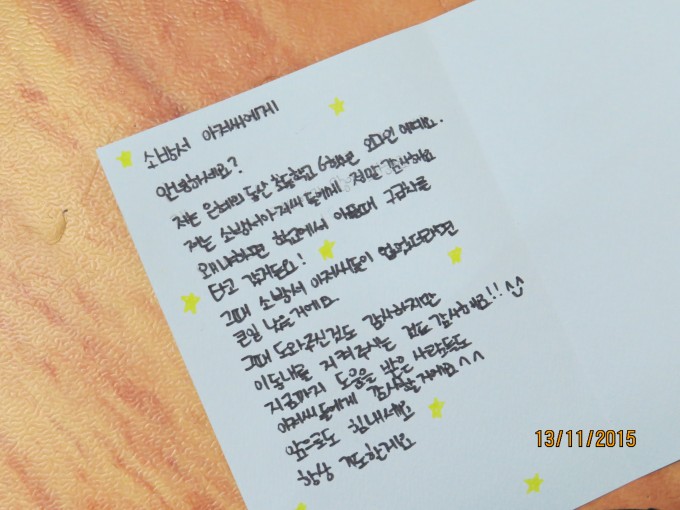 소방서 아저씨에게
안녕하세요?
저는 은혜의 동산 초등학교 6학년 외국인 예요.
저는 소방서아저씨들에게 정말 감사해요
왜냐하면 학교에서 아플때 구급차를
타고 갔거든요!
그때 소방서 아저씨들이 없었더라면
큰일 났을거에요
그때 도와주신것도 감사하지만
이동네를 지켜주시는 것도 감사해요!! ^^
지금까지 도움을 받은 사람들도
아저씨들에게 감사할거에요^^
앞으로도 힘내세요
항상 기도할게요
13/11/2015